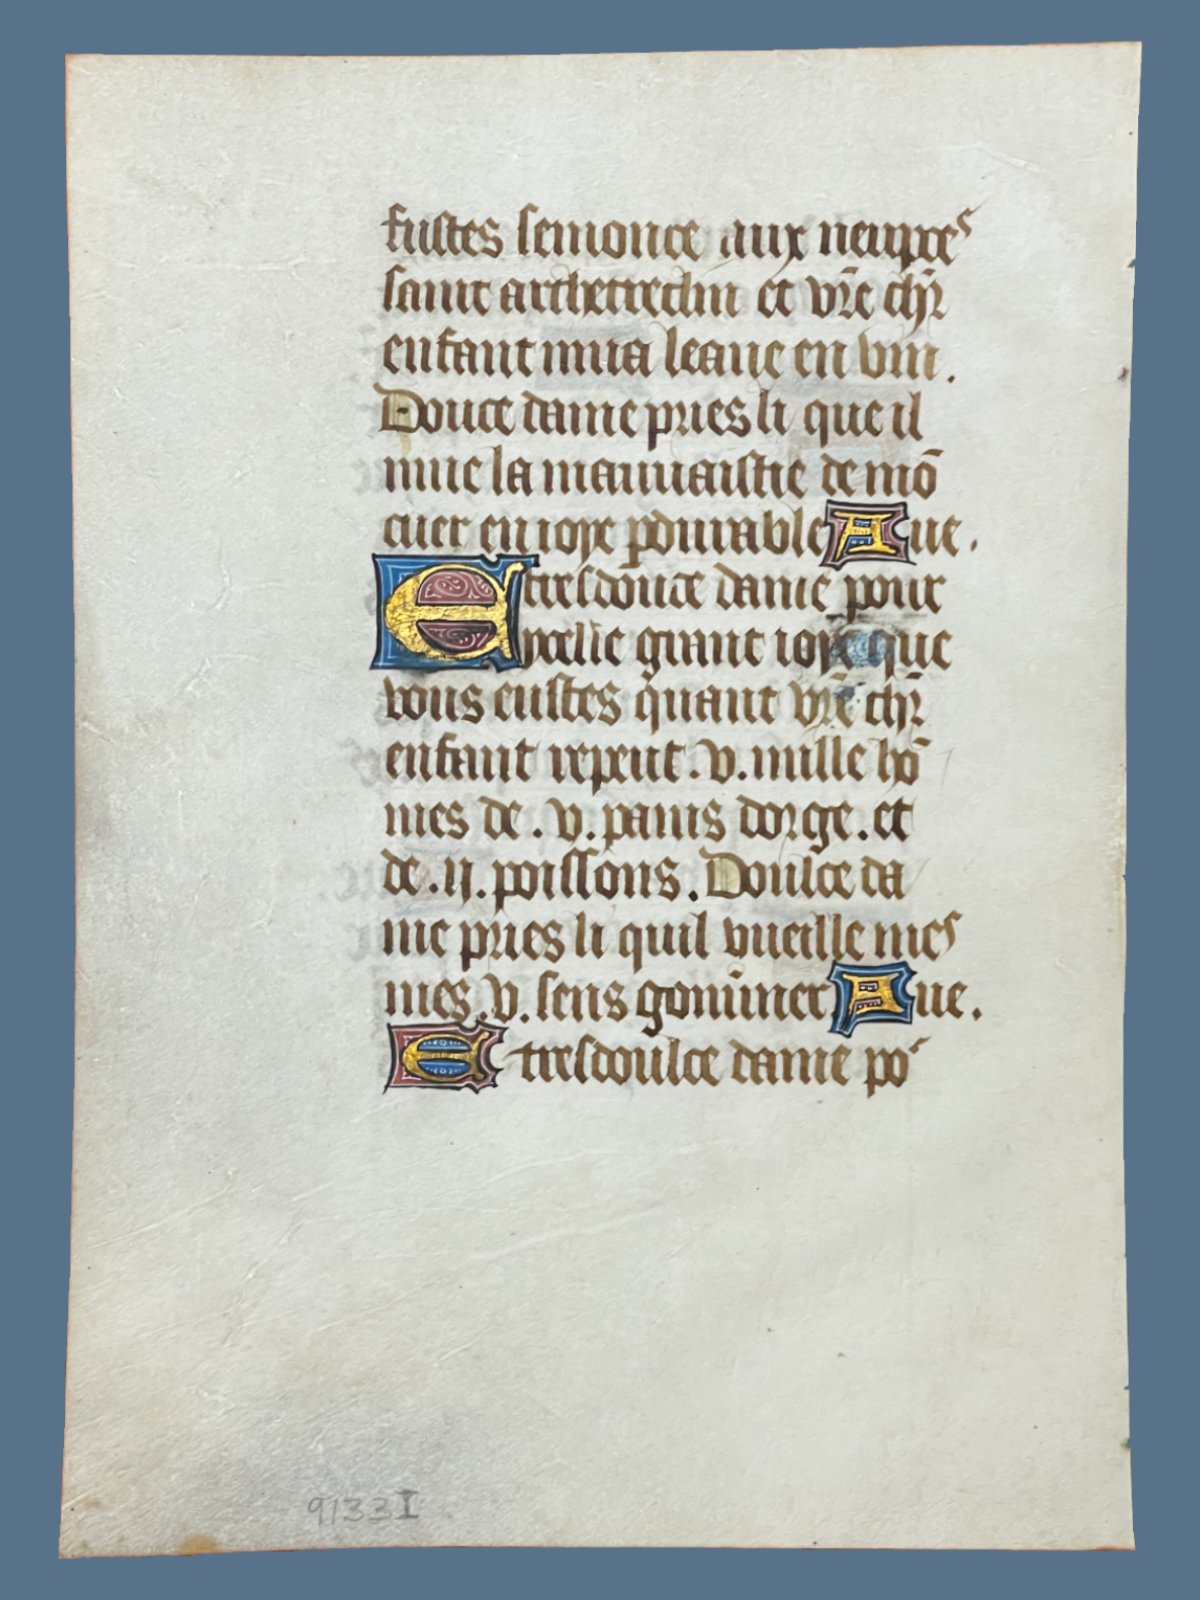 fustes semonce aux neupces
saint archetreclin et vr̄e chr̄
enfant mua leaue en vin.
Douce dame pries li que il
mue la mauuaistie de mō
cuer en ioye ꝑdurable Aue.
E tresdouce dame pour
ycelle grant ioye que
vous eustes quant vr̄e chr̄
enfant repeut .v. mille hō
mes de .v. pains dorge. et
de .ij. poissons. Doulce da
me pries li quil vueille mes
mes .v. sens gouūner Aue.
E tresdoulce dame po
9133 I